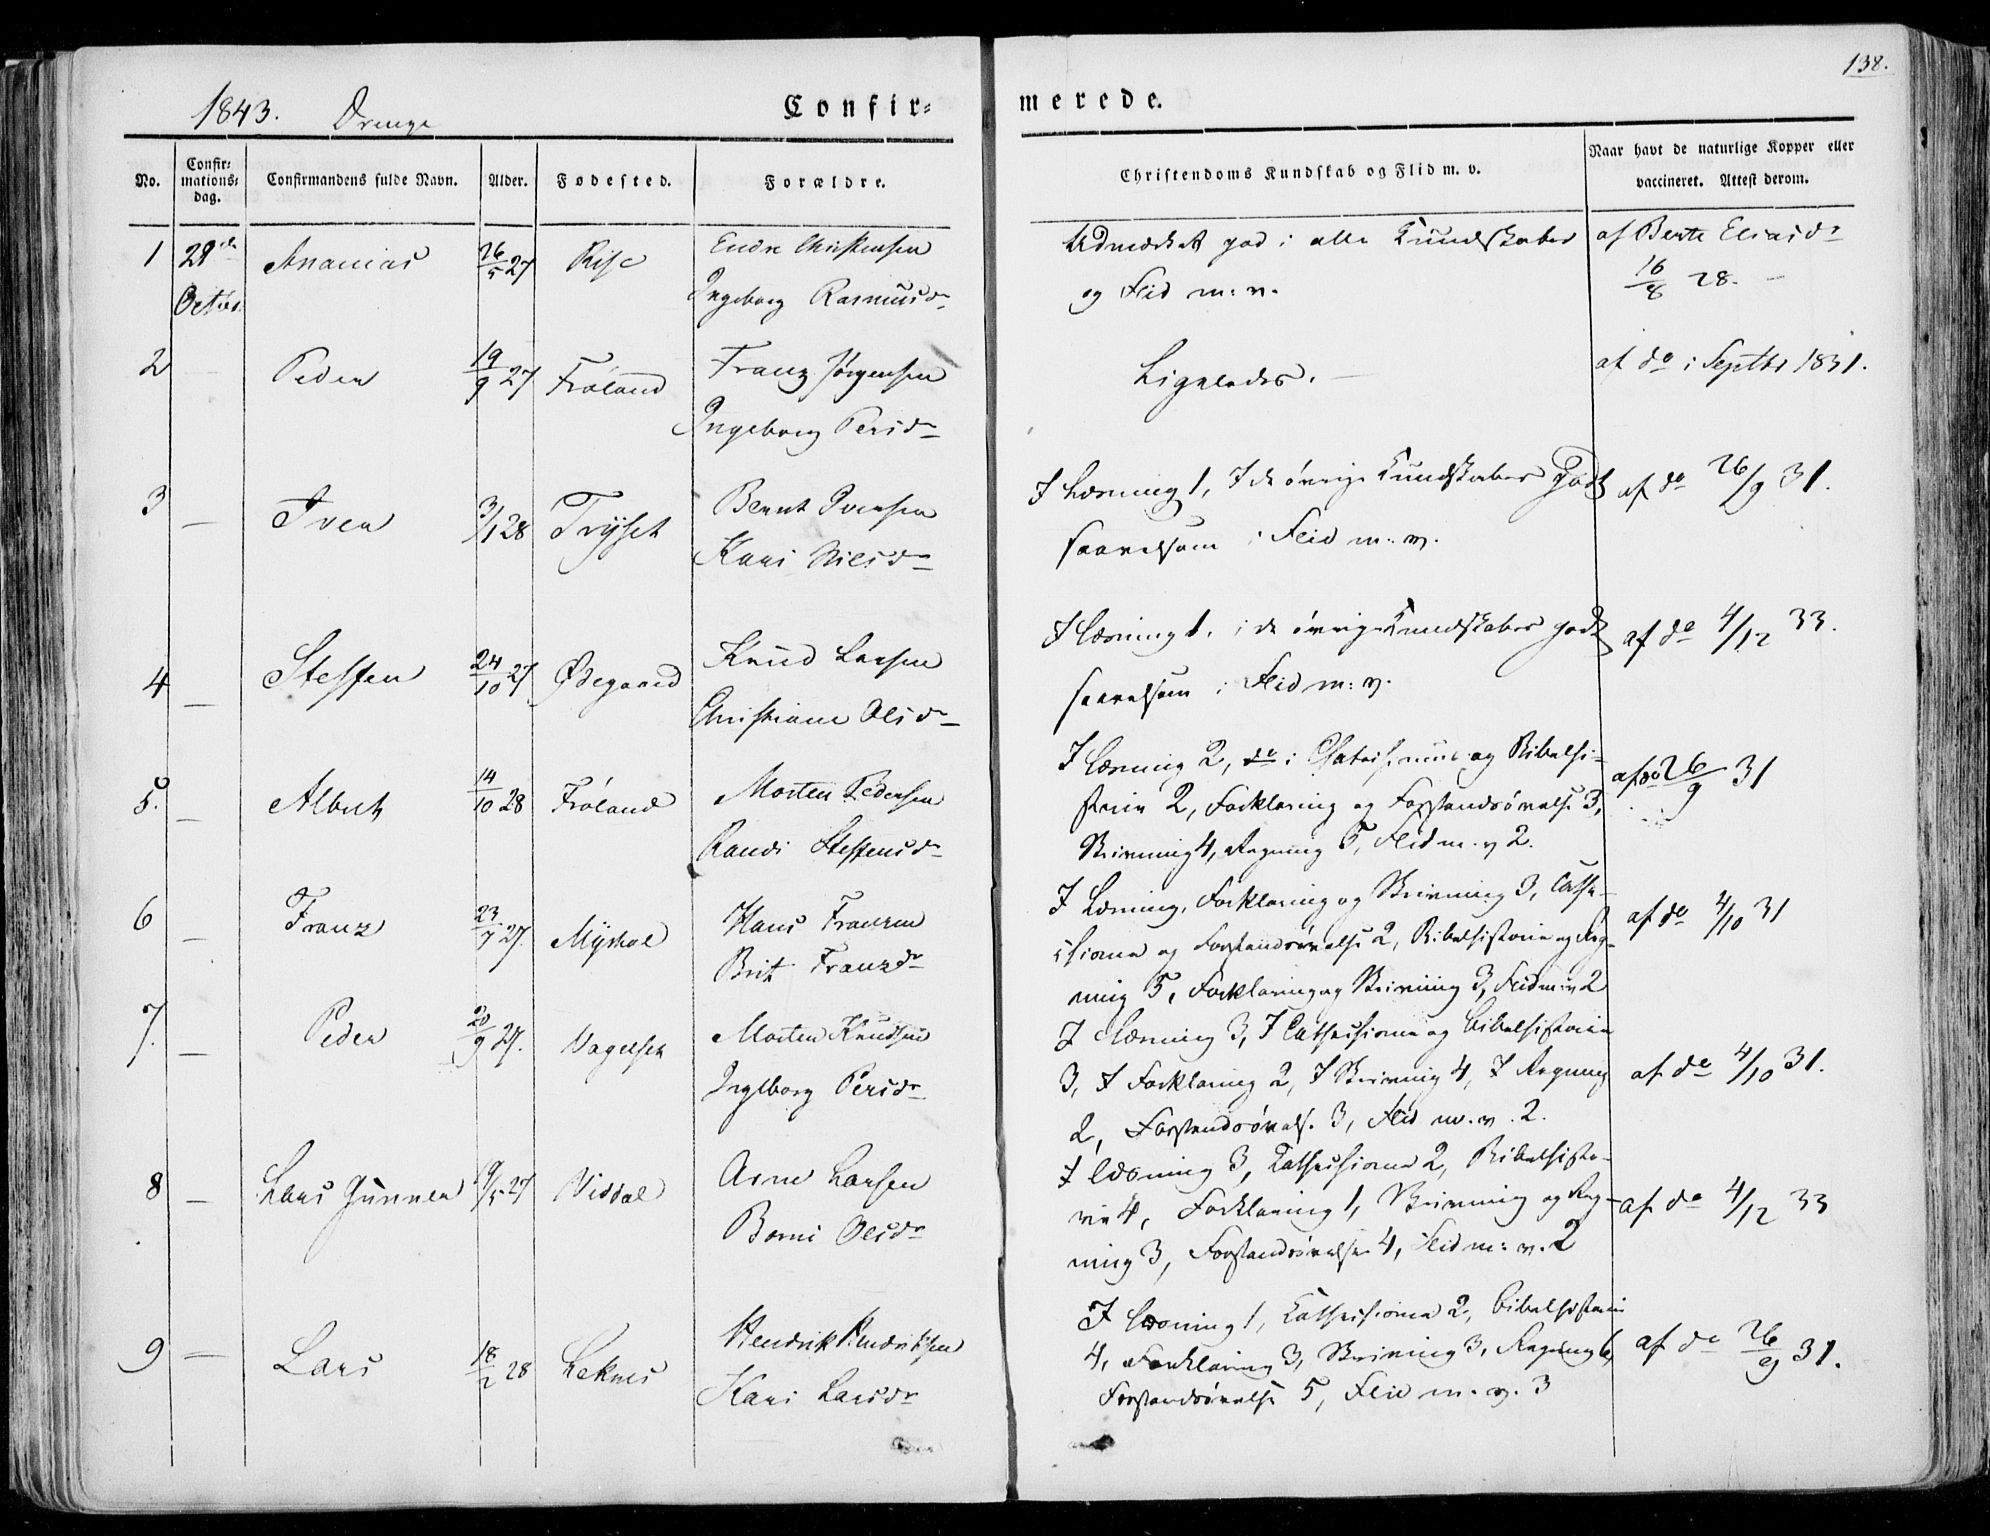 138.
1843. Drenge Confir= merede.
No. Confir=mations=dag. Confirmandens fulde Navn. Alder. Fødested. Forældre. Christendoms Kundskab og Flid m. v. Naar havt de naturlige Kopper eller vaccineret. Attest derom.
1 29de Ananias 26/5 27 Rise Endre Christensen Udmærket god i alle Kundskaber af Berte Eliasdr
Octbr. Ingeborg Rasmusdr og Flid m: v. 16/8 28. –
2 – Peder 19/9 27 Frøland Franz Jørgensen Ligeledes. – af do i Septbr 1831.
Ingeborg Persdr
3 – Iver 3/1 28 Tryset Bernt Iversen I Læsning 1, I de øvrige Kundskaber godt af do 26/9 31.
Kari Nilsdr saavelsom i Flid m: v.
4 – Steffen 24/10 27 Ødegaard Knud Larsen I læsning 1. i de øvrige Kundskaber godt af do 4/12 33.
Christiane Olsdr saavelsom i Flid m: v.
5. – Albert 14/10 28 Frøland Morten Pedersen I læsning 2, do i Chatechismus og Bibelhi- af do 26/9 31
Randi Steffensdr storie 2, Forklaring og Forstandsøvelse 3,
Skrivning 4, Regning 5, Flid m. v 2.
6 – Franz 23/7 27. Myskel Hans Franzen I Læsning, Forklaring og Skrivning 3, Cathe- af do 4/10 31
Brit Franzdr chisme og Forstandsøvelse 2, Bibelhistorie og Reg-
ning 5, Forklaring og Skrivning 3, Flid m: v 2
7. – Peder 20/9 27. Vagelset Morten Knudsen I Læsning 3, I Cathechisme og bibelhistorie
Ingeborg Persdr 3, I Forklaring 2, I Skrivning 4, I Regning af do 4/10 31.
2, Forstandsøvelse 3, Flid m. v. 2.
8 – Lars Gunner 9/5 27 Viddal Arne Larsen I læsning 3, Cathechisme 2, Bibelhisto-
Borni Olsdr rie 4, Forklaring 1, Skrivning og Reg- af do 4/12 33
ning 3, Forstandsøvelse 4, Flid m: v. 2
9 – Lars 18/2 28 Leknes Hendrik Hendriksen I læsning 1, Cathechisme 2, bibelhistorie
Kari Larsdr 4, Forklaring 3, Skrivning 3, Regning 6, af do 26/9 31.
Forstandsøvelse 5, Flid m. v. 3